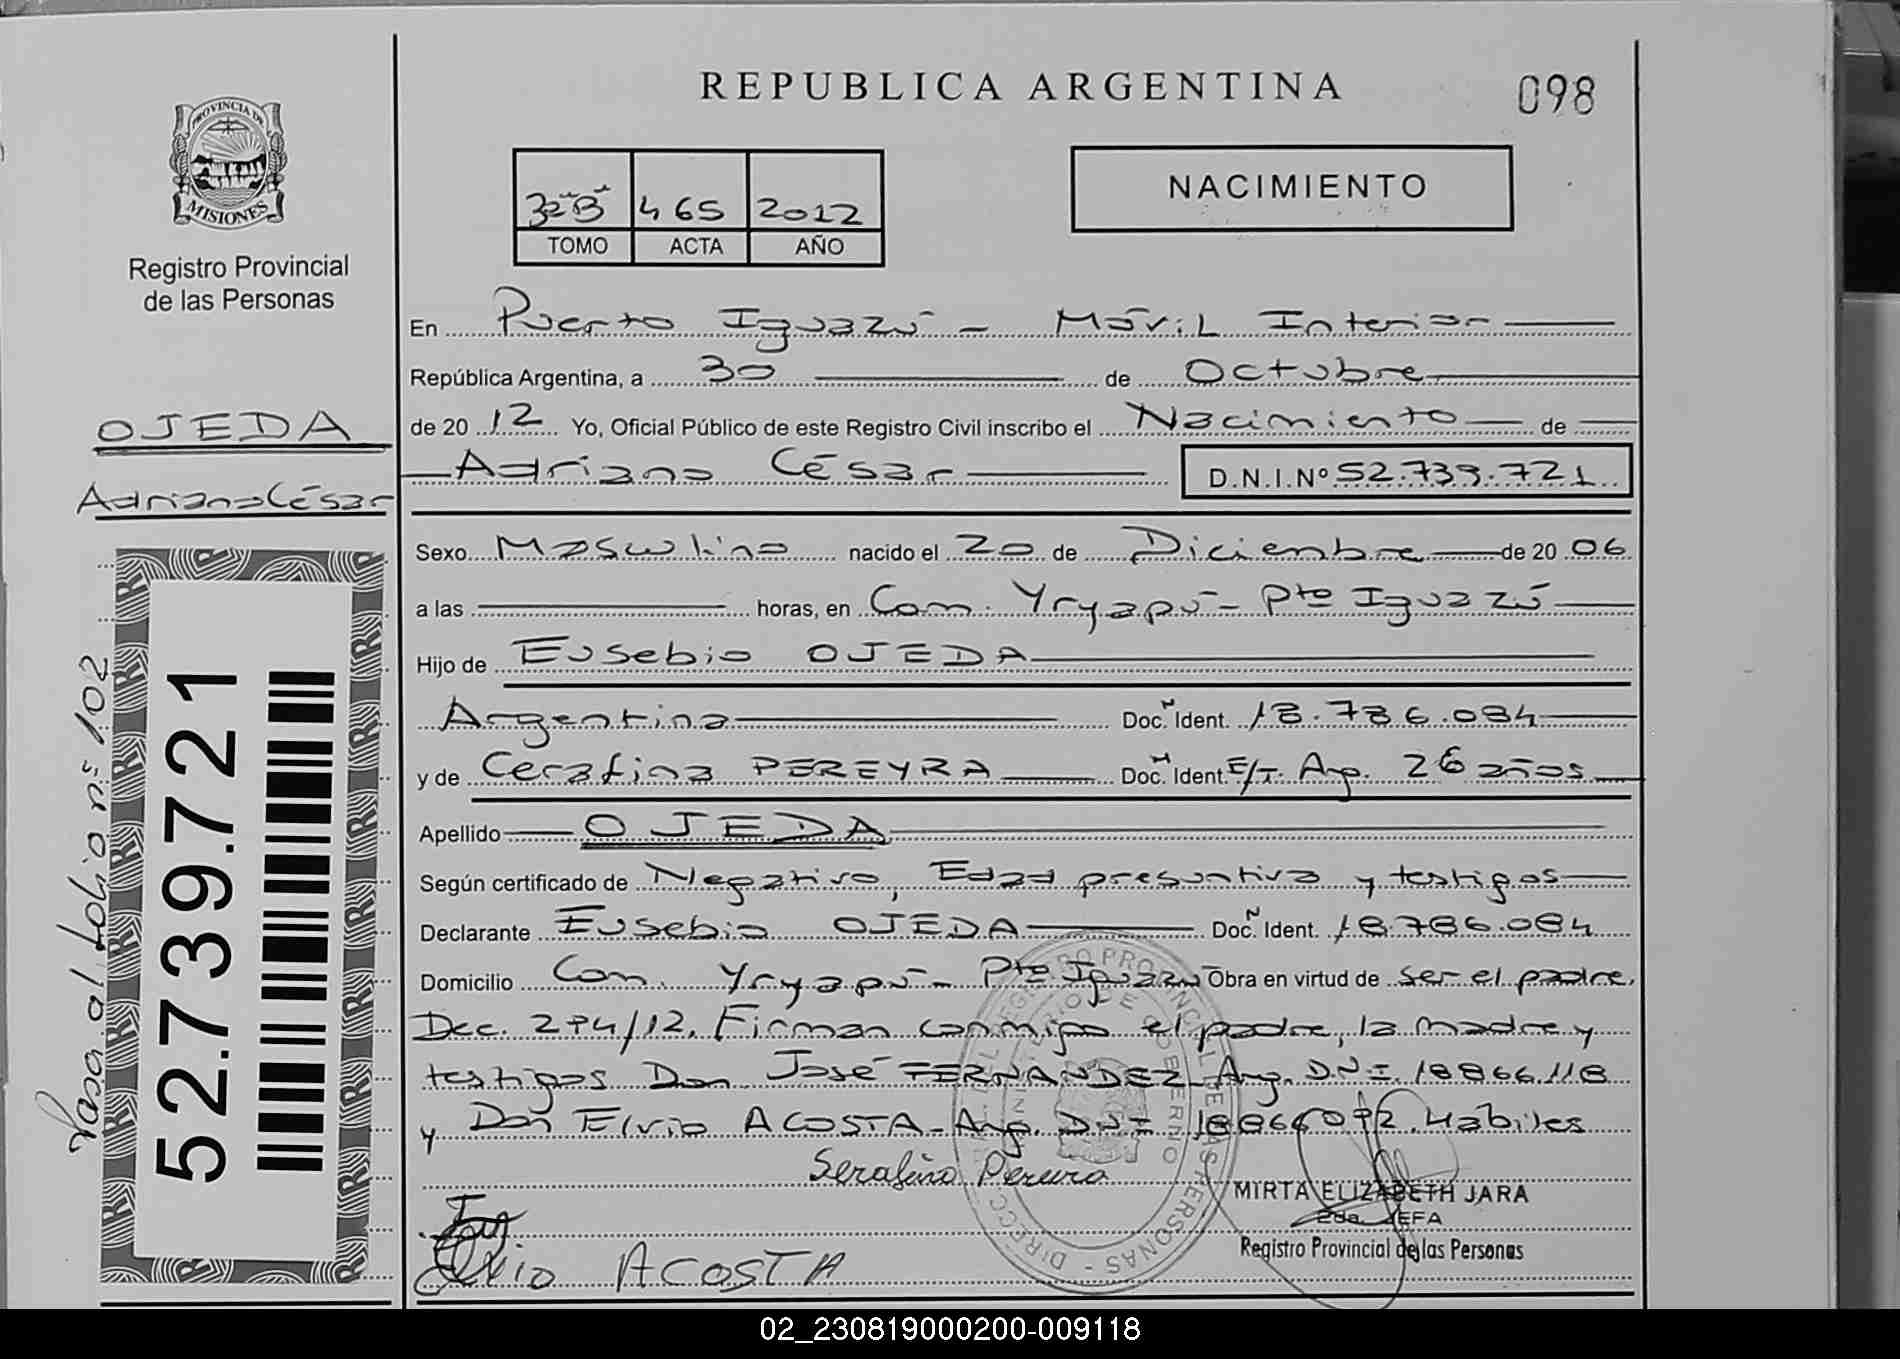 REPUBLICA ARGENTINA
098
PROVINCIA DE
MISIONES
Registro Provincial
de las Personas
3º"B" 465 2012
TOMO ACTA AÑO
NACIMIENTO
En Puerto Iguazú - Móvil Interior
República Argentina, a 30 de Octubre
de 20 12 Yo, Oficial Público de este Registro Civil inscribo el Nacimiento de
Adriano César D.N.I.Nº 52.739.721
OJEDA
Adriano César
Sexo Masculino nacido el 20 de Diciembre de 20 06
a las horas, en Com. Yryapú - Pto Iguazú
Hijo de Eusebio OJEDA
Argentina Doc. Ident. 18.786.084
y de Cerafina PEREYRA Doc. Ident. E/T. Arg. 26 años
Apellido OJEDA
Según certificado de Negativo, Edad presuntiva y testigos
Declarante Eusebio OJEDA Doc. Ident. 18.786.084
Domicilio Com. Yryapú - Pto Iguazú Obra en virtud de ser el padre.
Dec. 294/12. Firman conmigo el padre, la madre y
testigos Don José FERNANDEZ Arg. DNI. 18866.118
y Don Elvio ACOSTA - Arg. DNI 18866092. Hábiles
Serafina Pereira
MIRTA ELIZABETH JARA
2da. JEFA
Registro Provincial de las Personas
Elvio ACOSTA
Pasa al folio nº 102
52.739.721
02_230819000200-009118